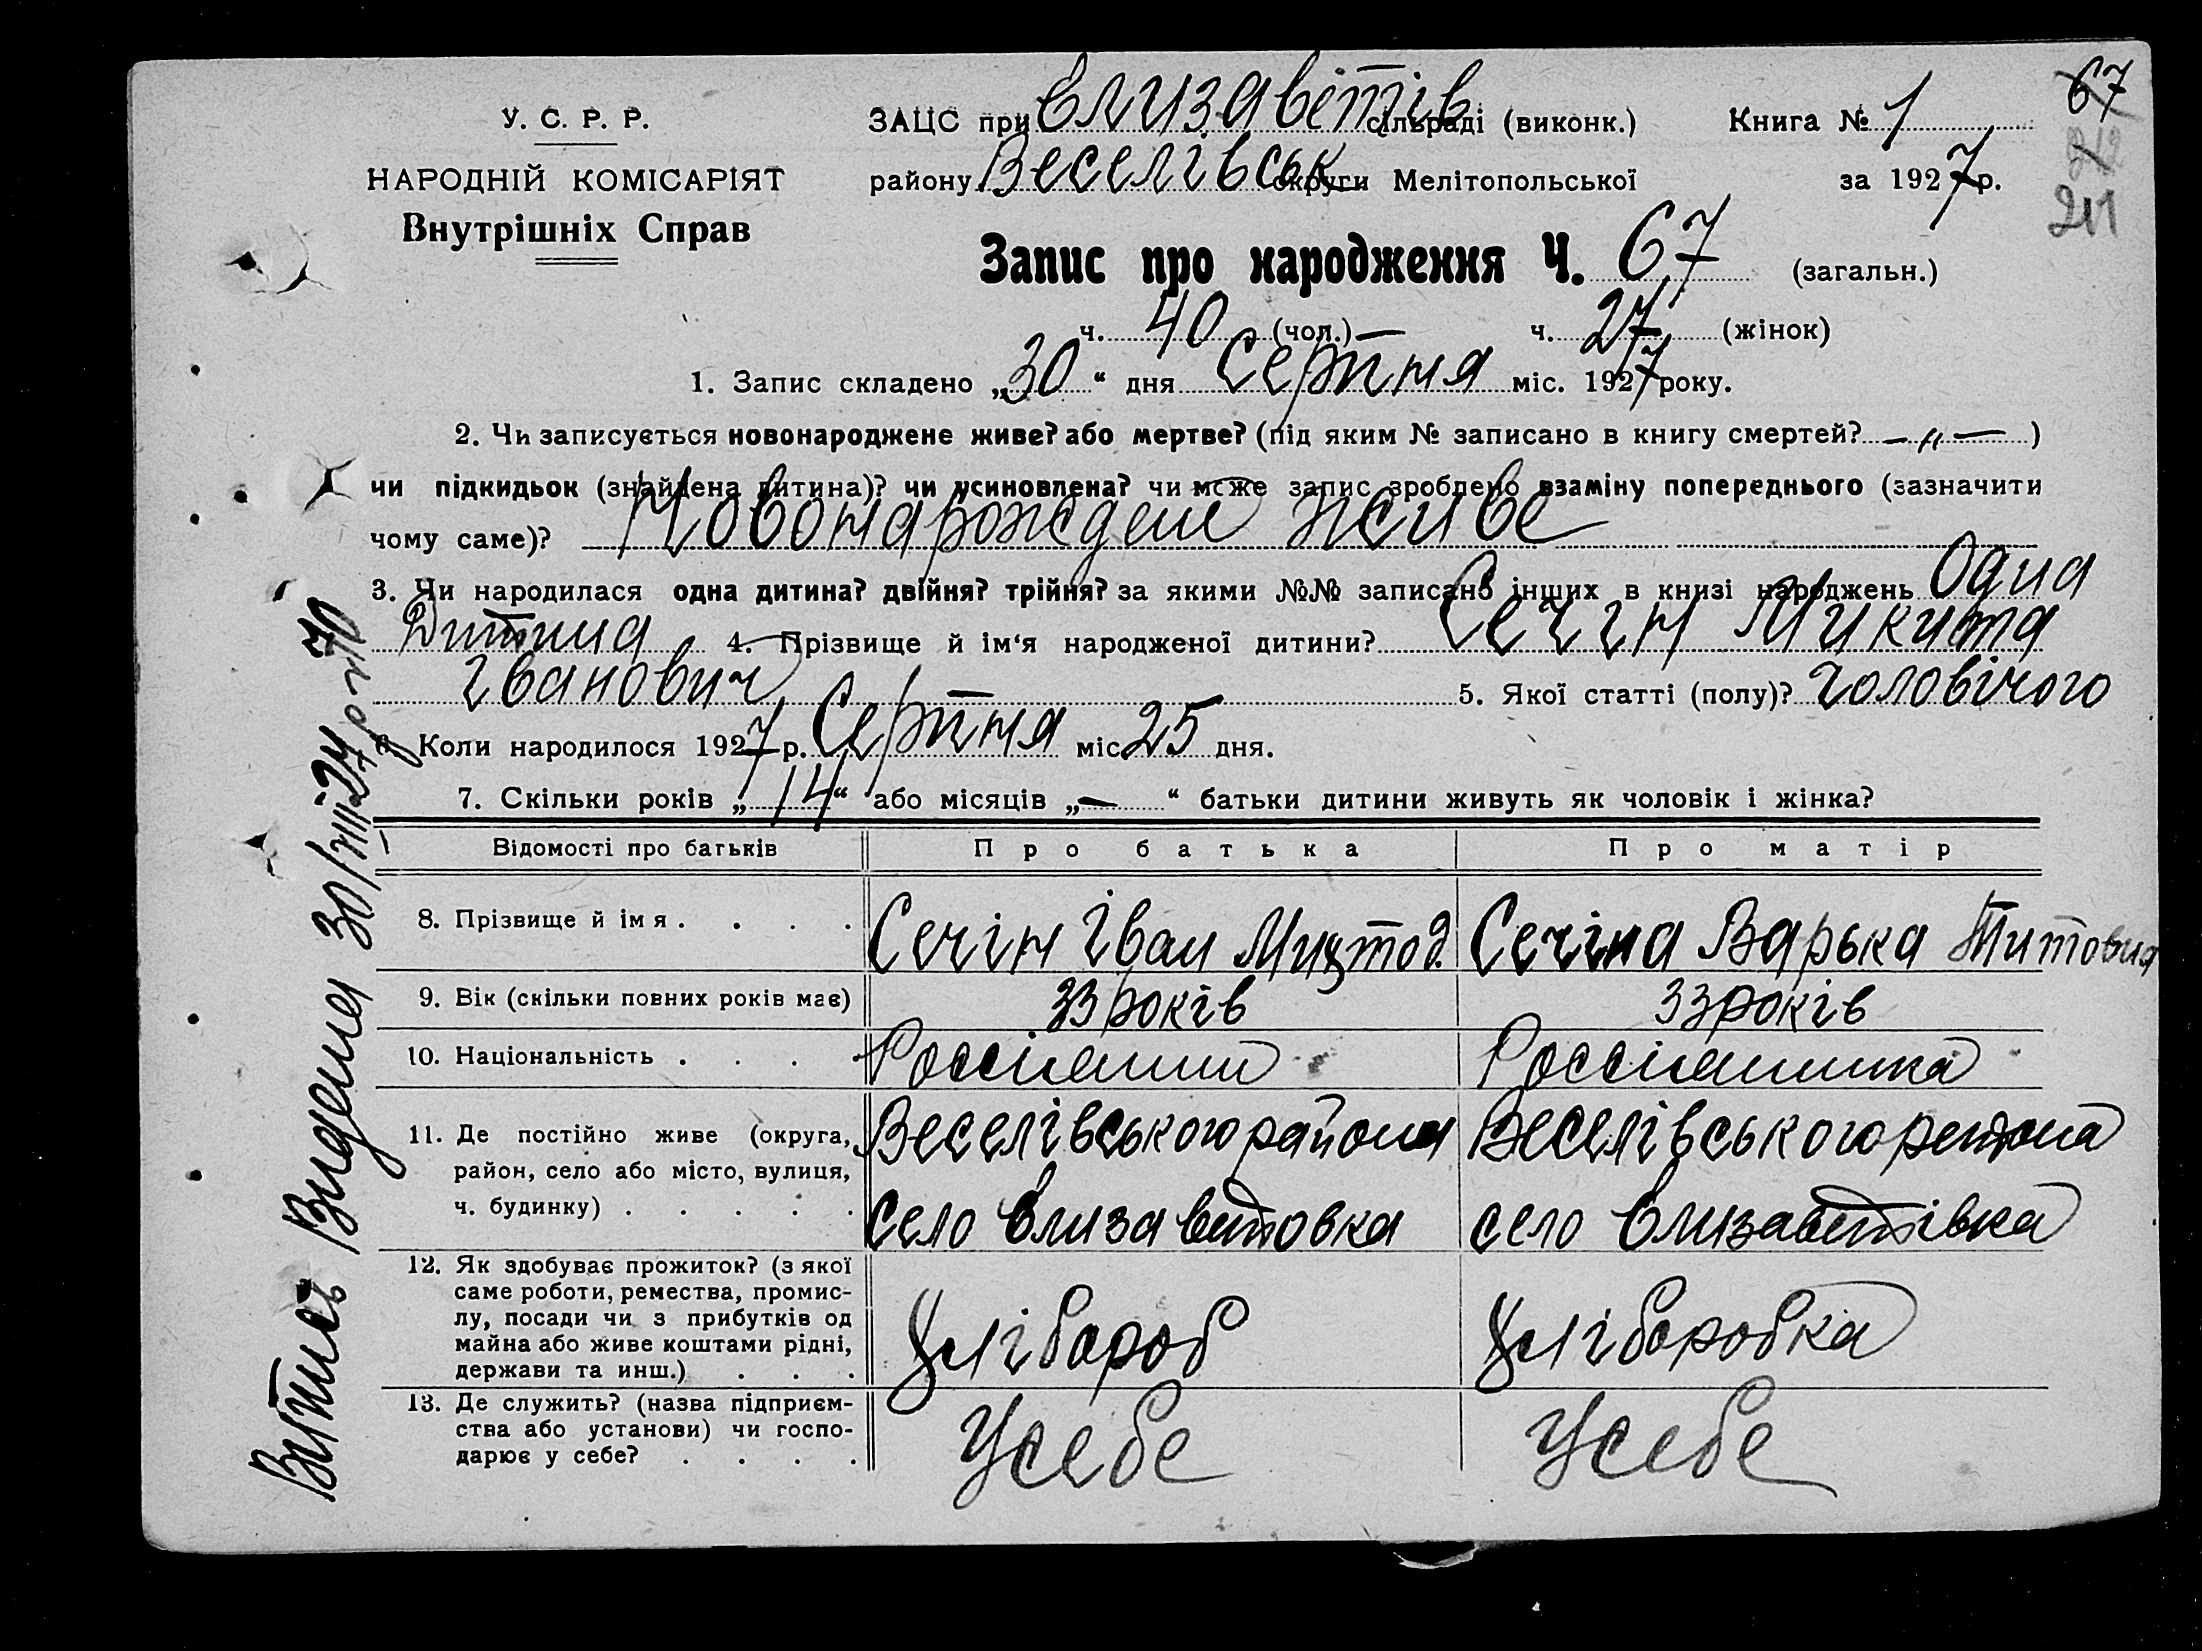 67
У. С. Р. Р.
ЗАЦС при Єлизавётів сільраді (виконк.)
Книга № 1
НАРОДНІЙ КОМІСАРІЯТ
району Веселівськ округи Мелітопольської
за 1927 р.
211
Внутрішніх Справ
Запис про народження Ч. 67 (загальн.)
ч. 40 (чол.) — ч. 27 (жінок)
1. Запис складено „30“ дня Серпня міс. 1927 року.
2. Чи записується новонароджене живе? або мертве? (під яким № записано в книгу смертей? — „ — )
чи підкидьок (знайдена дитина)? чи усиновлена? чи може запис зроблено взаміну попереднього (зазначити
чому саме)? Новонарожден живе
3. Чи народилася одна дитина? двійня? трійня? за якими №№ записано інших в книзі народжень Одна
Дитина 4. Прізвище й ім‘я народженої дитини? Сечін Микита
Іванович — 5. Якої статті (полу)? Чоловічого
6. Коли народилося 1927 р. Серпня міс 25 дня.
7. Скільки років „14“ або місяців „—“ батьки дитини живуть як чоловік і жінка?
Відомості про батьків
Про батька
Про матір
8. Прізвище й імя . . . .
Сечін Іван
Сечіна Варька Титовна
9. Вік (скільки повних років має)
33 років
33 років
10. Національність . . . .
Россиянин
Россиянинка
11. Де постійно живе (округа,
район, село або місто, вулиця,
ч. будинку) . . . . .
Веселівського района
село Єлизаветовка
Веселівського района
село Єлизаветівка
12. Як здобуває прожиток? (з якої
саме роботи, ремества, промис-
лу, посади чи з прибутків од
майна або живе коштами рідні,
держави та инш.) . . .
Хлібороб
Хліборобка
13. Де служить? (назва підприєм-
ства або установи) чи госпо-
дарює у себе? . . . .
Усебе
Усебе
Витис Видена 30/VIII-27 р № 70